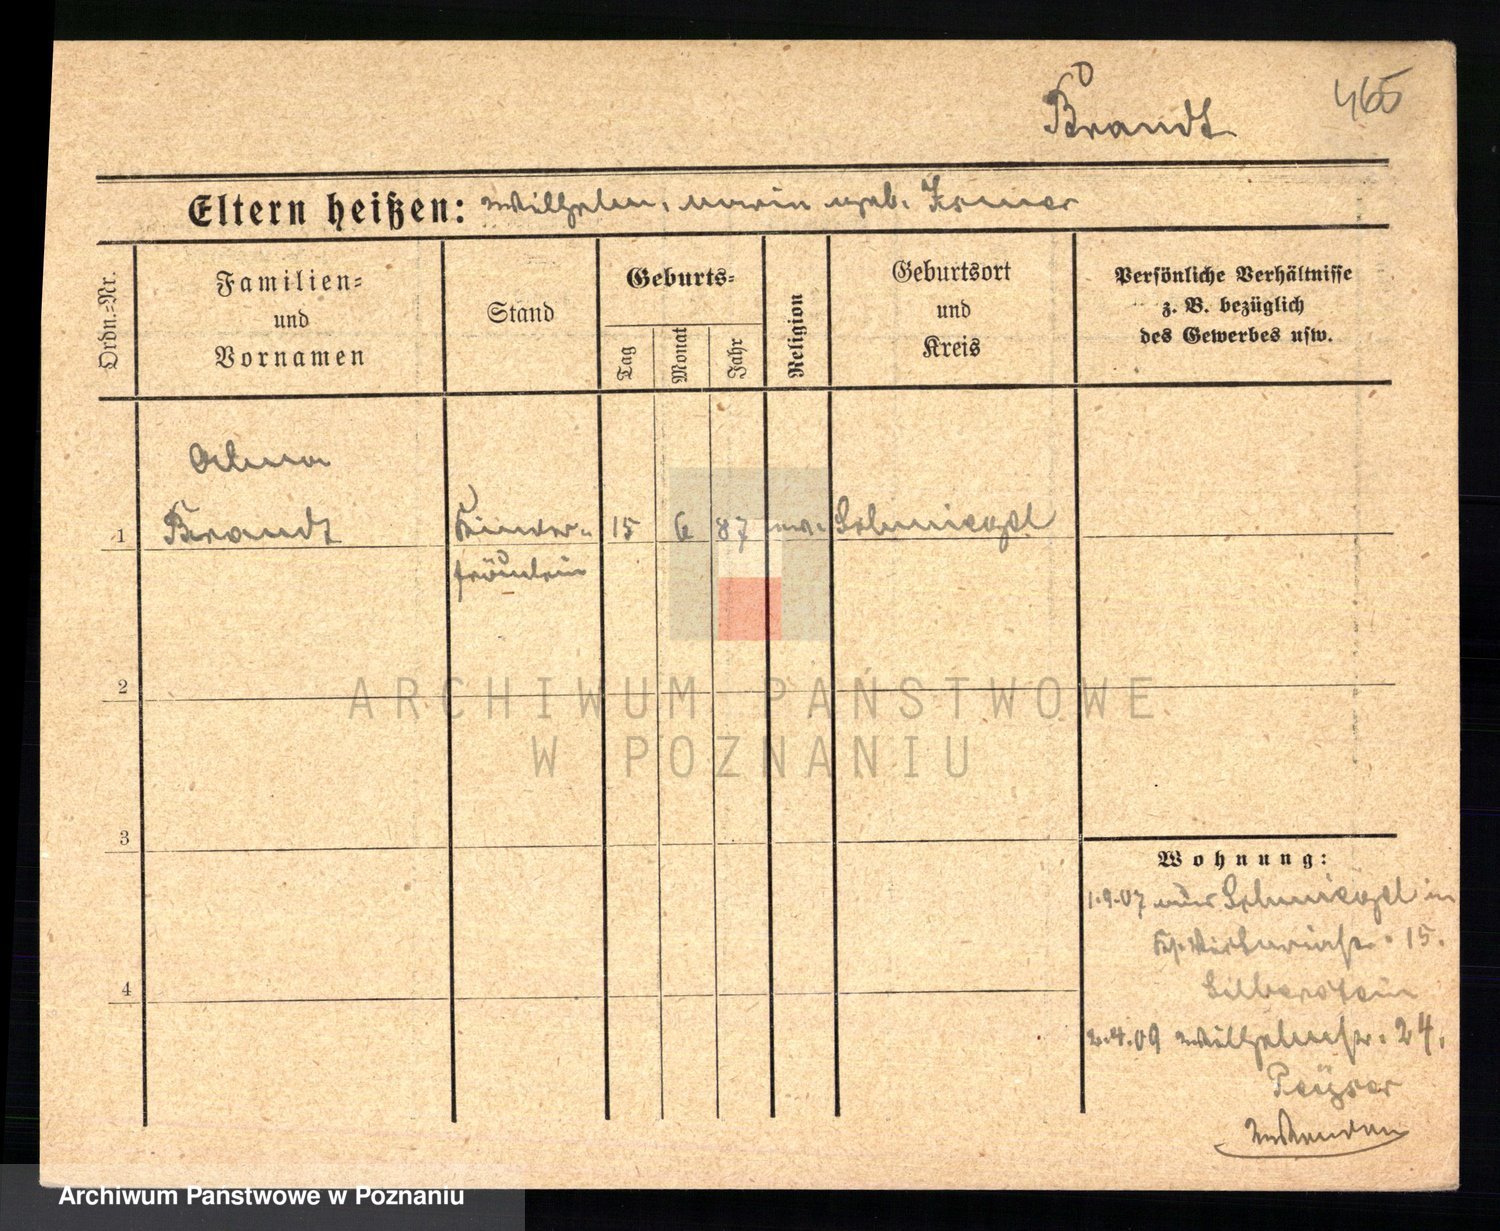 465
Brandt
Eltern heißen: Wilhelm, Marie geb.
Ordn.=Nr.
Familien=
und
Vornamen
Stand
Geburts=
Tag
Monat
Jahr
Religion
Geburtsort
und
Kreis
Persönliche Verhältnisse
z. B. bezüglich
des Gewerbes usw.
Alma
1 Brandt Kinder= 15 6 87 ev. Schmiegel
fräulein
2
ARCHIWUM PAŃSTWOWE
W POZNANIU
3
Wohnung:
1.9.07 aus Schmiegel in
15.
Silberstein
4
2.4.09 Wilhelmstr. 24.
Peyser
Archiwum Państwowe w Poznaniu